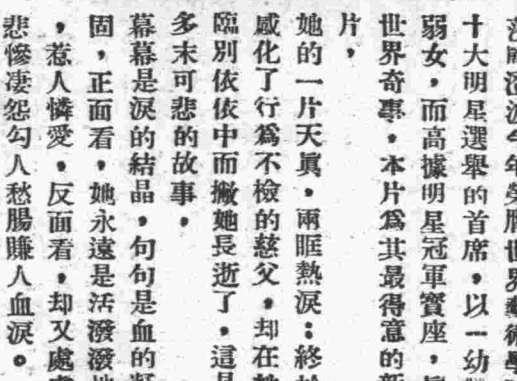 今年榮膺世界藝術學
十大明星選舉的首席，以一幼
弱女，而高據明星冠軍寶座，
世界奇事，本片爲其最得意的新
片，
她的一片天眞，兩眶熱淚：終於
感化了行爲不檢的慈父，却在她
臨別依依中而撇她長逝了，這是
多末可悲的故事，
幕幕是淚的結晶，句句是血的凝
固，正面看，她永遠是活潑潑地
，惹人憐愛，反面看，却又處處
悲慘凄怨勾人愁腸賺人血淚。